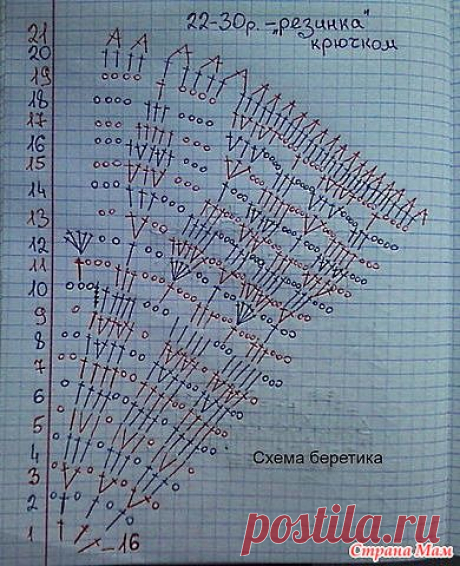 22-30р. - „резинка"
крючком
21
20
19
18
17
16
15
14
13
12
11
10
9
8
7
6
5
4
3
2
1
-16
Схема беретика
postila.ru
Страна Мам